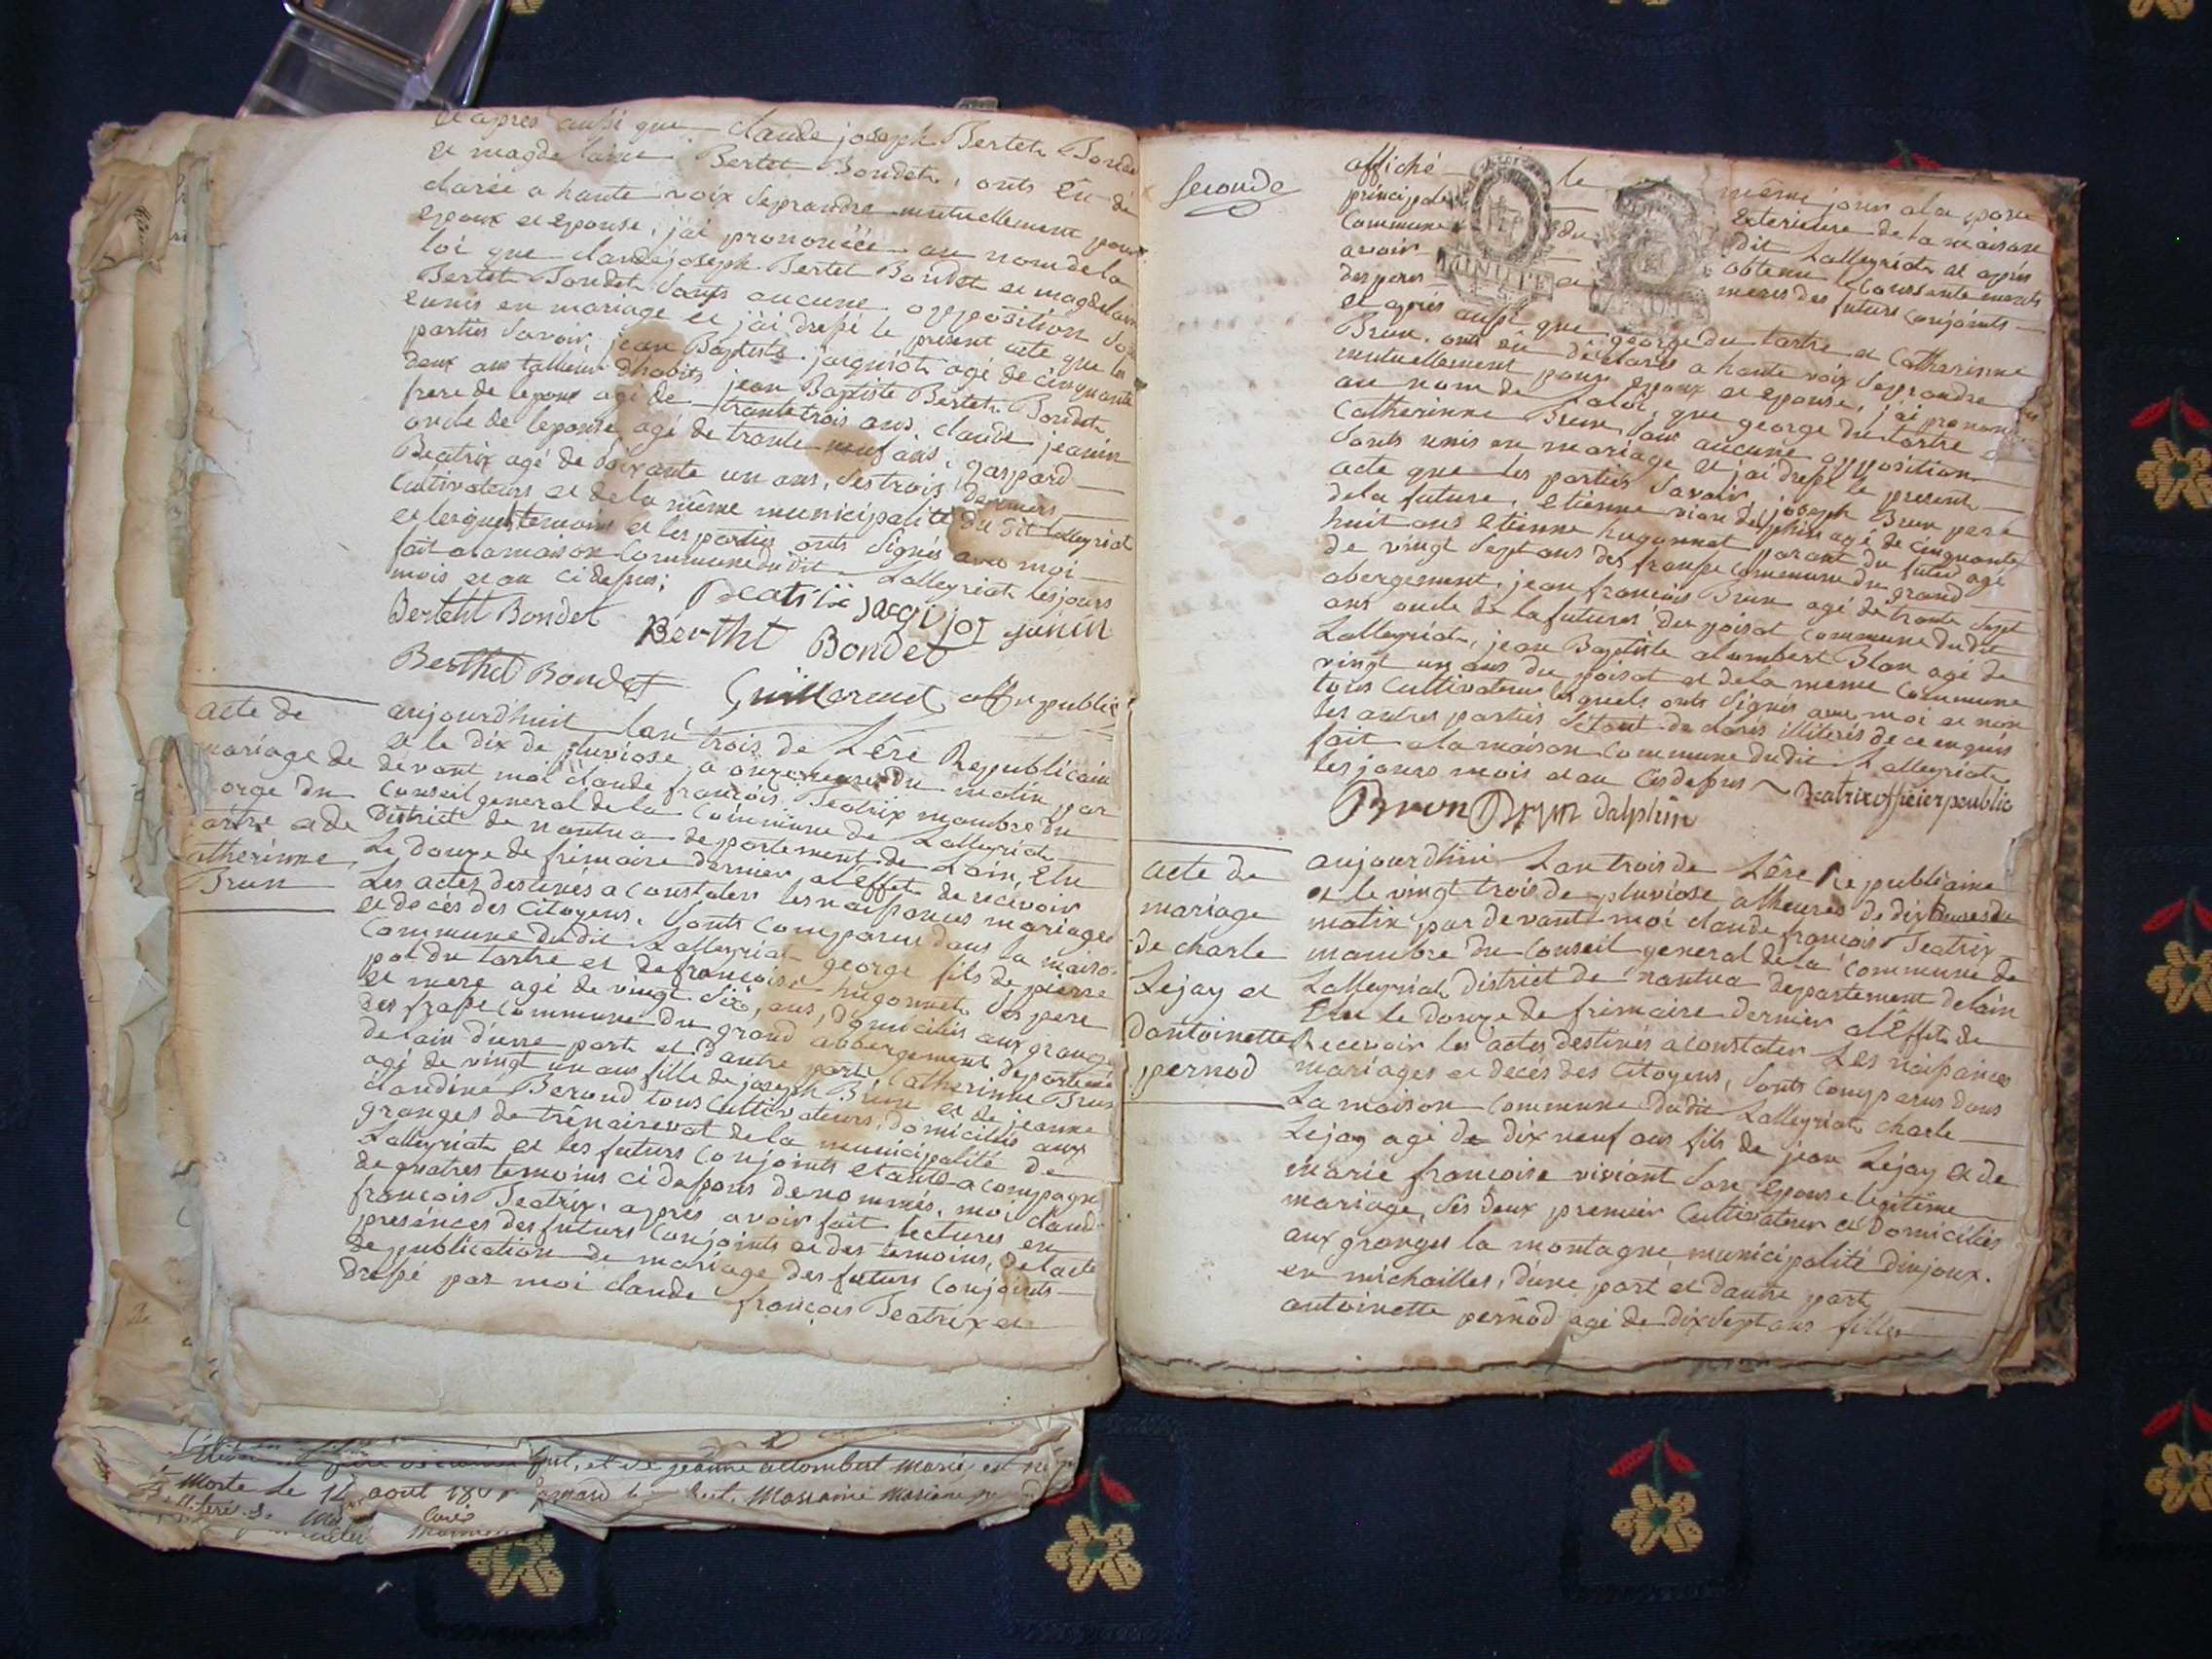 et apres aussi que claude joseph Bertet Bondet
et magdelaine Bertet Bondet, onts eû dé
clarée a haute voix se prandre mutuellement pour
epoux et epouse, j'ai prononcéé au nom de la
loi que claude joseph Bertet Bondet et magdelaine
Bertet Bondet sans aucune opposition sont
eunis en mariage et j'ai drepé le present acte que les
parties savoir, jean Baptiste jacquiot agé de cinquante
deux ans tallieur dhabits jean Baptiste Bertet Bondet
frere de lepoux agé de trante trois ans, claude jeanin
oncle de lepouse agé de trante neuf ans, gaspard
Beatrix agé de soixante un ans, ses trois derniers
cultivateurs et de la même municipalité du dit Lalleyriat
et lesquels temoins et les parties onts signés avec moi
fait a la maison commune du dit Lalleyriat les jours
mois et an ci depus;
Beatrix jacqujot janin
Berteht Bondet Bertht Bondet
Berthet Bondet Guillermet offr public
acte de
mariage de
orge du
artre et de
atherinne
Brun
aujourdhuit lan trois de Lêre Republicain
et le dix de pluviose a onze heure du matin par
devant moi claude françois Beatrix mambre du
Conseil general de la Commune de Lalleyriat
District de nantua departement de Lain, Elu
Le douze de frimaire dernier al Effet de recevoir
Les actes destinés a constater les naipances mariages
et decés des Citoyens. sonts comparus dans la maison
Commune du dit Lalleyriat george fils de pierre
pol du tartre et de francoise hugonnet ses pere
et mere agé de vingt six ans, domiciliés aux granges
des frape commune du grand abbergement departement
de lain d'une part et d'autre part Catherinne Brun
agé de vingt un ans fille de joseph Brun et de jeanne
claudine Beroud tous cultivateurs, domiciliés aux
granges de trênairevat de la municipalité de
Lalleyriat et les futurs conjoints etants acompagné
de quatres temoins ci depous denommés, moi claude
francois Beatrix, apres avoir fait lectures en
presénces des futurs conjoints et des temoins, de lacte
de publication de mariage des futurs conjoints
drepé par moi claude françois Beatrix et
seconde
affiché le même jour a la porte
principale exterieure de la maison
Commune du dit Lalleyriat et aprés
avoir obtenu Consantements
des peres et meres des futurs conjoints
MINUTE
et aprés aupi que george du tartre et Catherinne
Brun, onts eû déclarés a haute voix se prandre
mutuellement pour epoux et epouse, j'ai prononcé
au nom de la loi, que george du tartre et
Catherinne Brun, sans aucune opposition
sonts unis en mariage et j'ai drepé le present
acte que les parties savoir, joseph Brun pere
de la future, etienne vion delphin agé de cinquante
huit ans etienne hugonnet parant du futur agé
de vingt sept ans des fraupe commune du grand
abergement, jean françois Brun agé de trante sept
ans oncle de la future du poisat commune du dit
Lalleyriat, jean Baptiste alombert Blan agé de
vingt un ans du poisat et de la meme commune
tous cultivateurs lesquels onts signés avec moi et non
les autres parties setant declarés illiterés de ce enquis
fait a la maison commune du dit Lalleyriat
les jours mois et an ci dessus Beatrix officier peublic
Brun Brun dalphin
acte de
mariage
de charle
Lejay et
dantoinette
pernod
aujourdhui Lan trois de Lêre Republicaine
et le vingt trois de pluviose a lheures de dix heures du
matin par devant moi claude francois Beatrix
mambre du Conseil general de la commune de
Lalleyriat district de nantua departement de lain
Elu le douze de frimaire dernier al Effet de
Recevoir les actes destinés a constater Les naipances
mariages et decés des Citoyens, sonts comparus dans
La maison commune du dit Lalleyriat charle
Lejay agé de dix neuf ans fils de jean Lejay et de
marie francoise viviant son epouse legitime
mariage, ses deux premier cultivateur et Domiciliés
aux granges la montagne municipalité dinjoux
en michailles, d'une part et dautre part
antoinette pernod agé de dix sept ans fille
et de jeanne allombert marie est
Morte le 14 aout